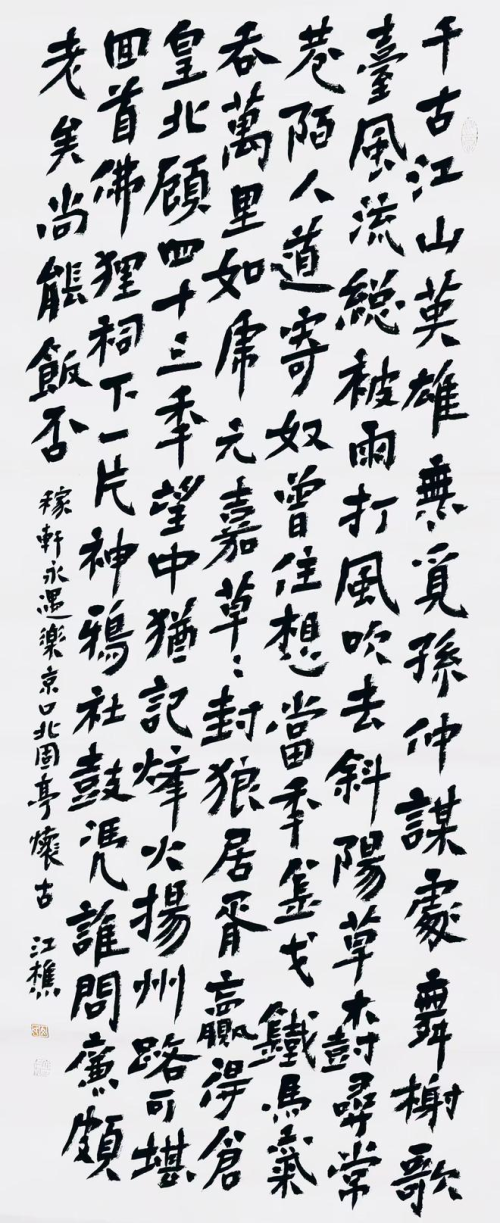 千古江山英雄無覓孫仲謀處舞榭歌
臺風流總被雨打風吹去斜陽草樹尋常
巷陌人道寄奴曾住想當秊金戈鐵馬氣
吞萬里如虎元嘉草〻封狼居胥贏得倉
皇北顧四十三秊望中猶記烽火揚州路可堪
回首佛狸祠下一片神鴉社鼓凴誰問廉頗
老矣尚能飯否 稼軒永遇樂京口北固亭懷古 江樵